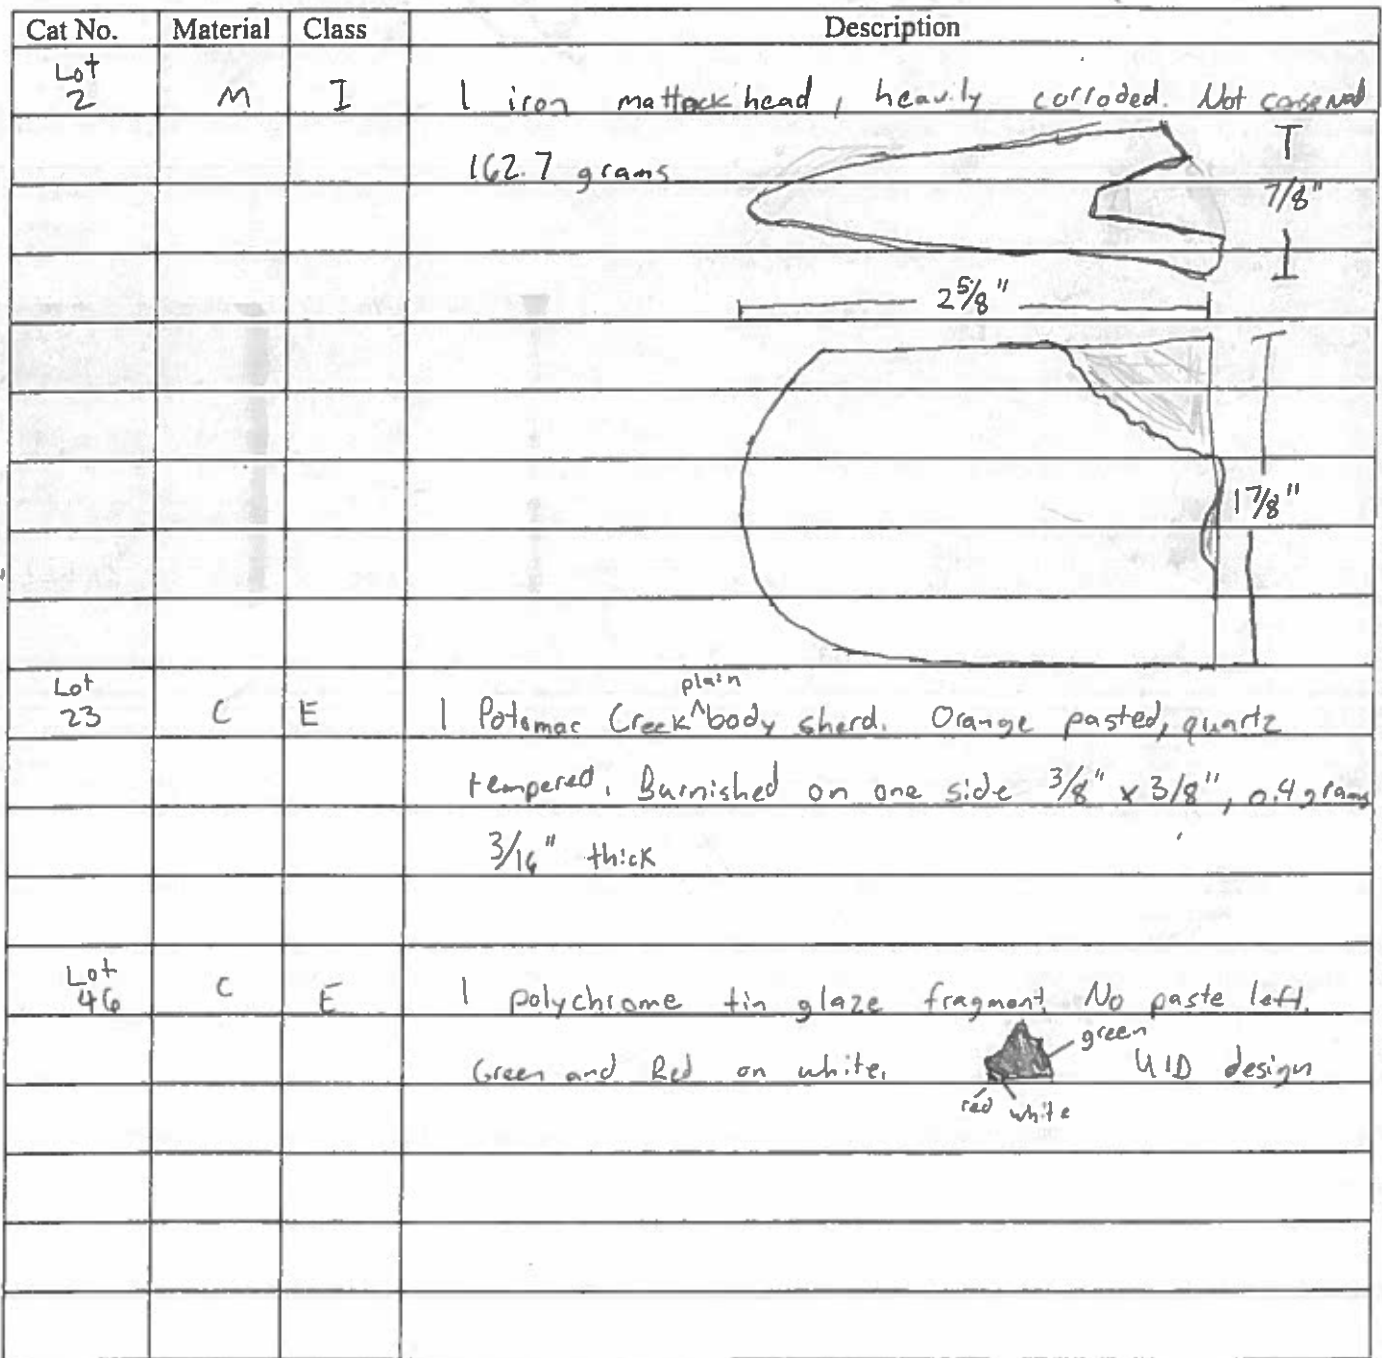 Cat No. Material Class Description
Lot
2 M I 1 iron mattock head, heavily corroded. Not conserved
162.7 grams
7/8"
2 5/8"
1 7/8"
Lot
23 C E 1 Potomac Creek ^plain body sherd. Orange pasted, quartz
tempered. Burnished on one side 3/8" x 3/8", 0.4 grams
3/16" thick
Lot
46 C E 1 polychrome tin glaze fragment. No paste left.
Green and Red on white. green UID design
red white